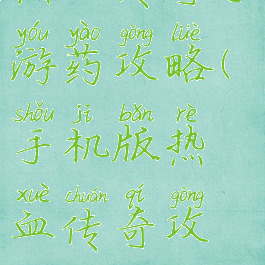 yóu yào gōng lüè
游药攻略(
shǒu jī bǎn rè
手机版热
xuè chuán qí gōng
血传奇攻